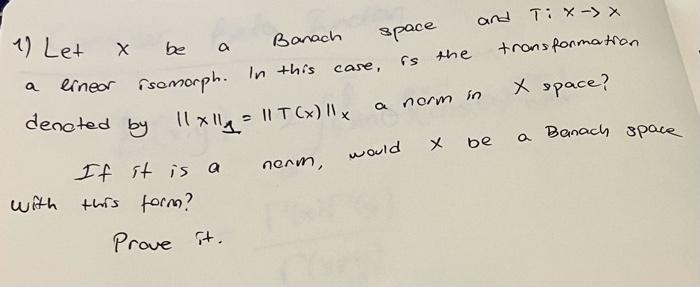 1) Let X be a Banach space and T: X -> X
a linear isomorph. In this case, is the transformation
denoted by ||x||₁ = ||T(x)||ₓ a norm in X space?
If it is a norm, would X be a Banach space
with this form?
Prove it.